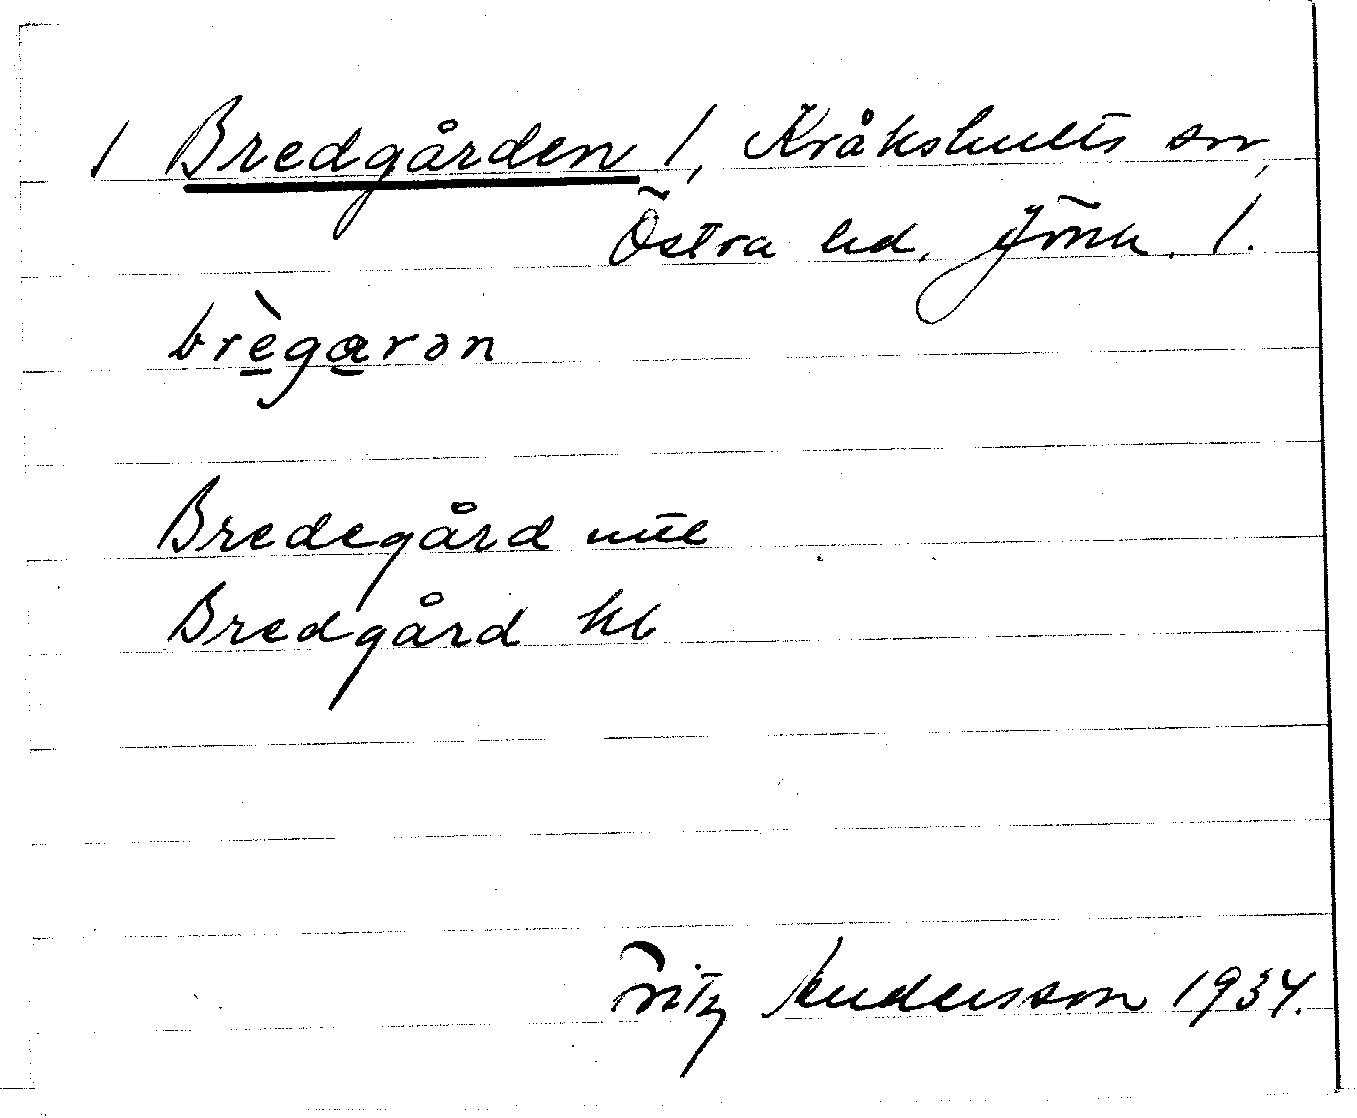 1 Bredgården 1, Kråkshults sn,
Östra hd, Jönk. l.
brègarən
Bredegård
Bredgård kb
Fritz Andersson 1934.